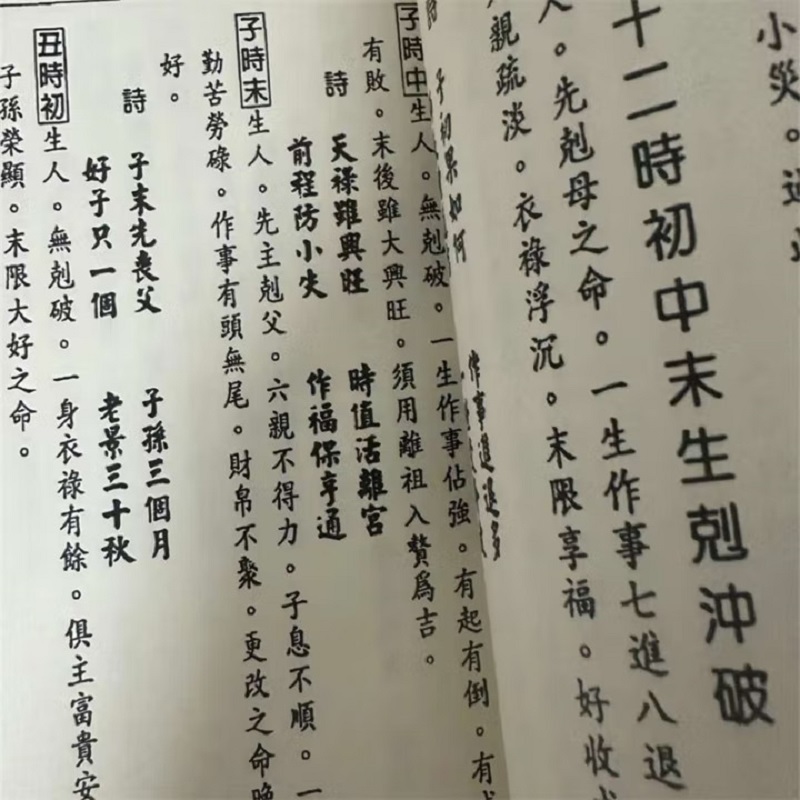 小災。
十二時初中末生剋沖破
人。先剋母之命。一生作事七進八退
親疏淡。衣祿浮沉。末限享福。好收
子初果如何
作事進退多
子時中生人。無剋破。一生作事佔強。有起有倒。有
有敗。末後雖大興旺。須用離祖入贅爲吉。
詩 天祿雖興旺 時值活離宮
前程防小失 作福保亨通
子時末生人。先主剋父。六親不得力。子息不順。一
勤苦勞碌。作事有頭無尾。財帛不聚。更改之命晚
好。
詩 子末先喪父 子孫三個月
好子只一個 老景三十秋
丑時初生人。無剋破。一身衣祿有餘。俱主富貴安
子孫榮顯。末限大好之命。